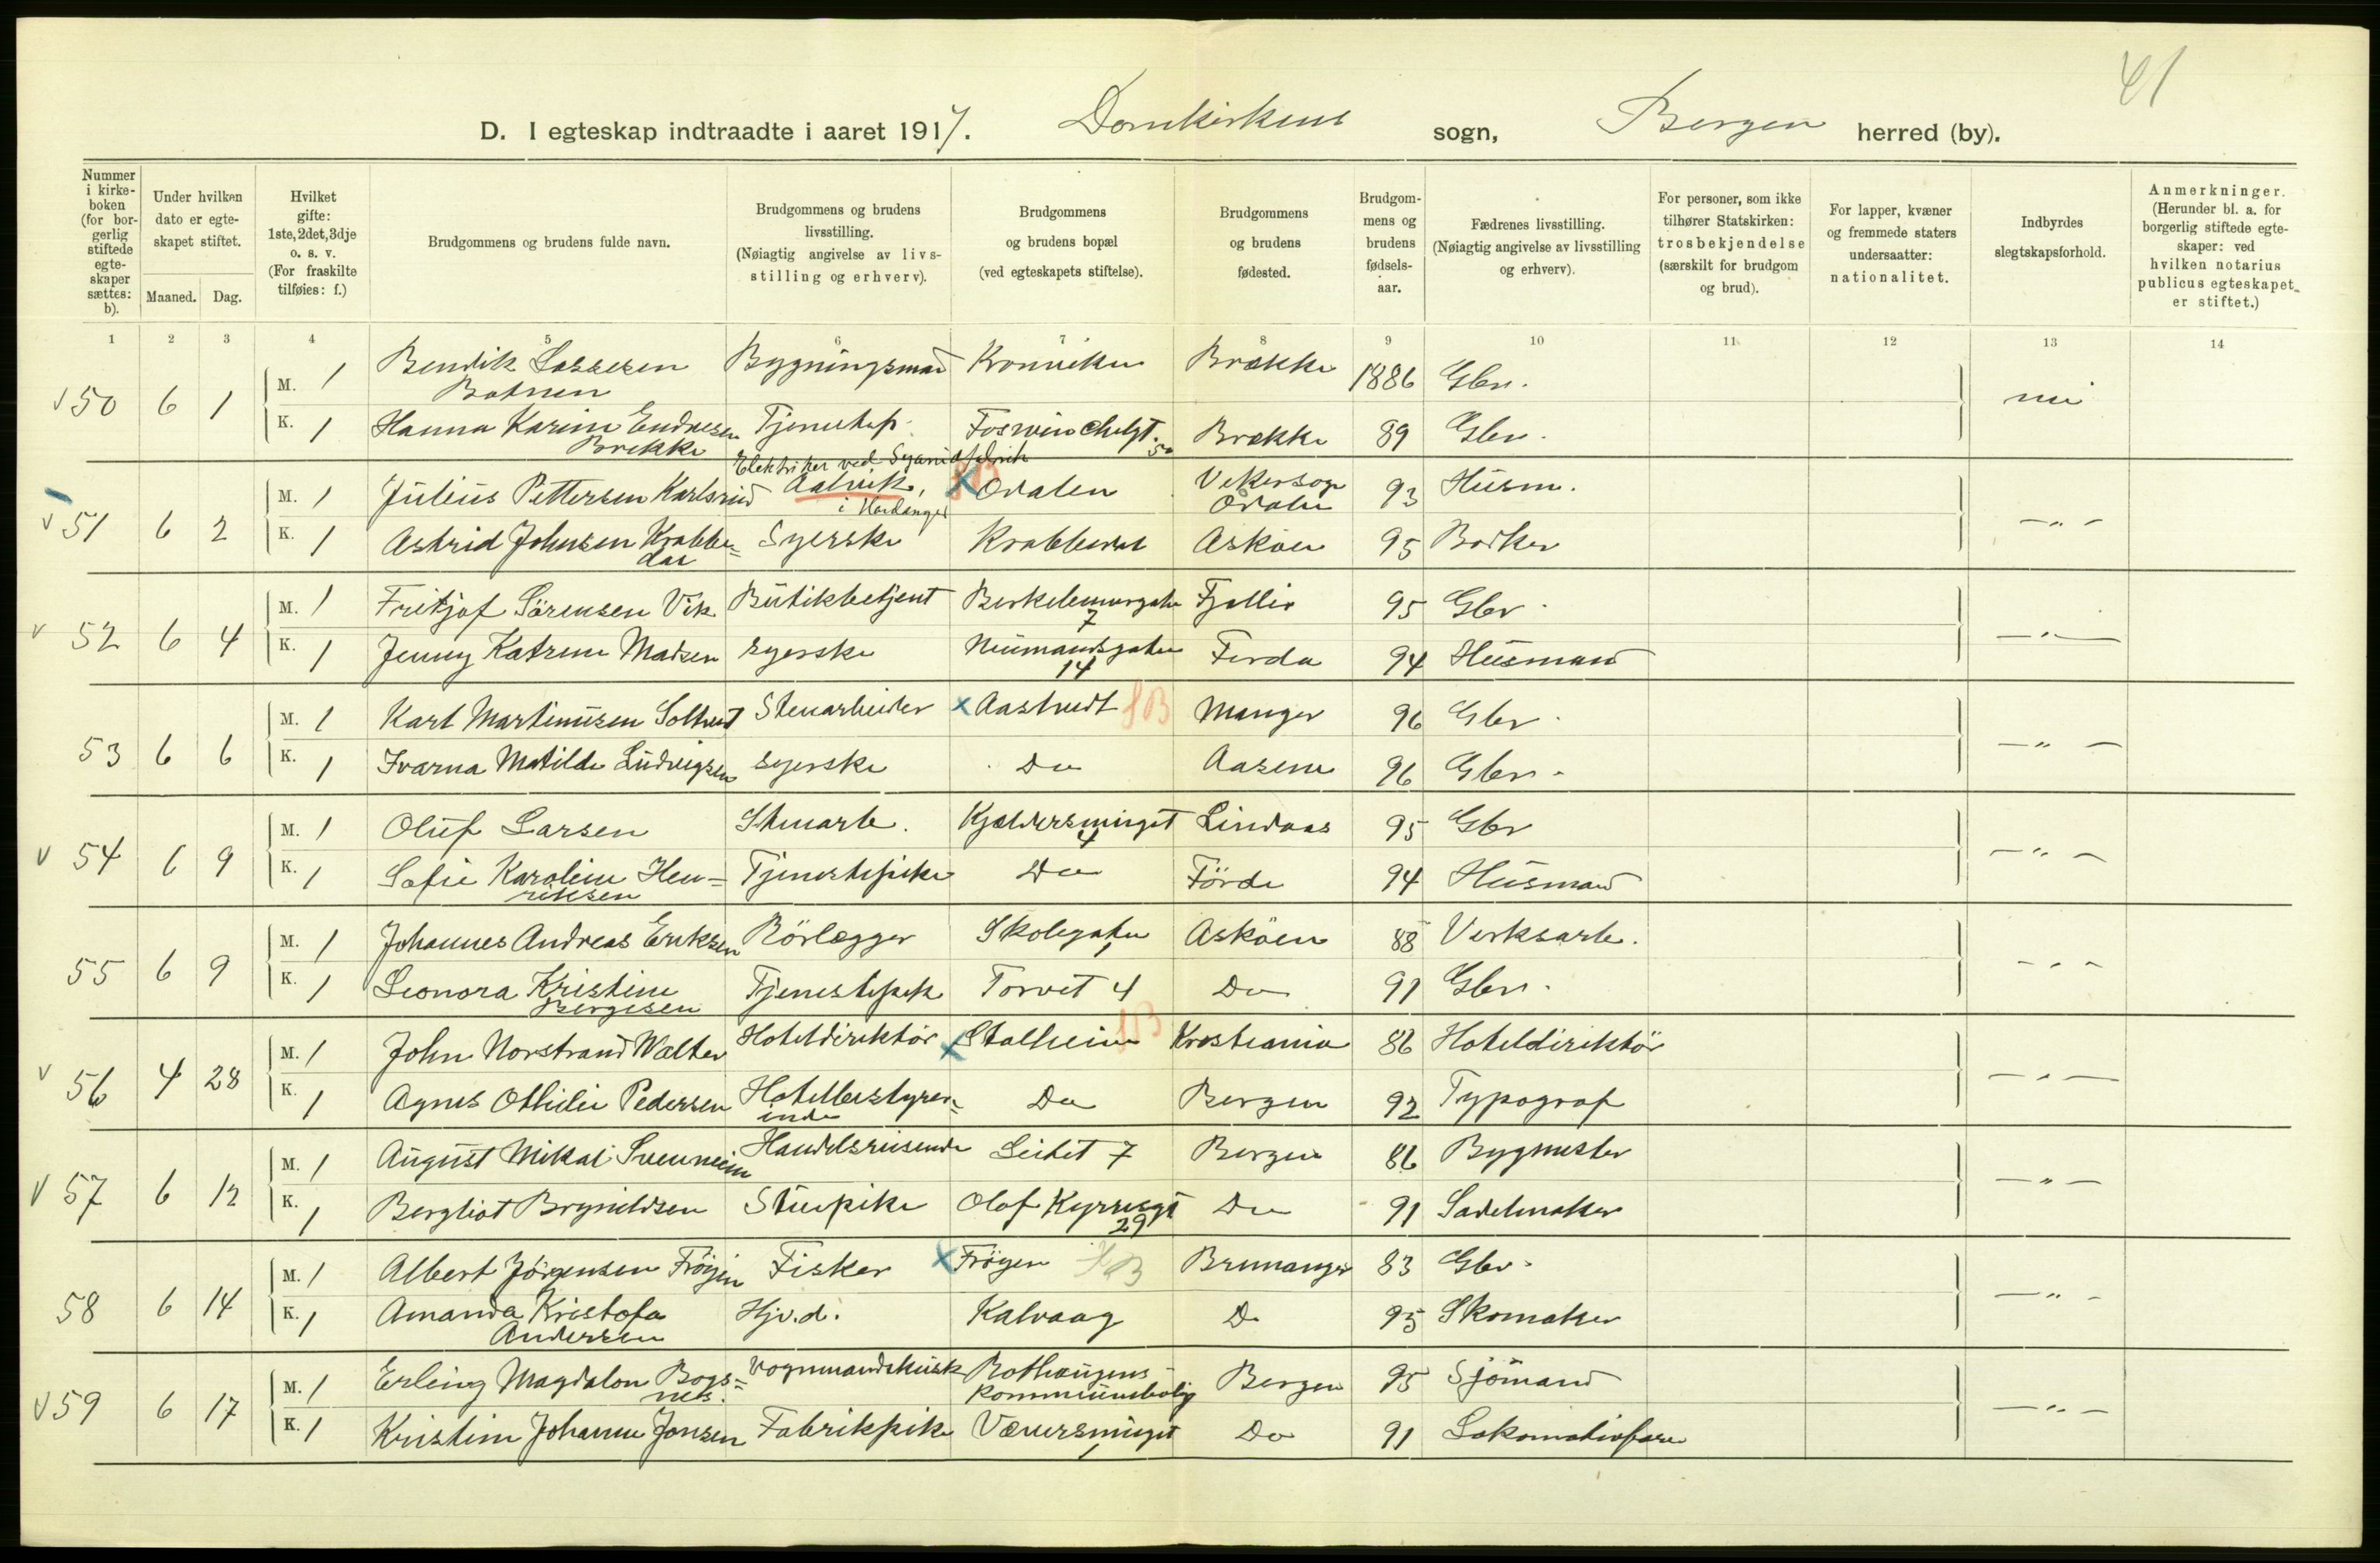 41
D. I egteskap indtraadte i aaret 1917. Domkirkens sogn, Bergen herred (by).
Nummer i kirkeboken (for borgerlig stiftede egteskaper sættes: b).
Under hvilken dato er egteskapet stiftet.
Maaned. Dag.
Hvilket gifte: 1ste, 2det, 3dje o. s. v. (For fraskilte tilføies: f.)
Brudgommens og brudens fulde navn.
Brudgommens og brudens livsstilling. (Nøiagtig angivelse av livsstilling og erhverv).
Brudgommens og brudens bopæl (ved egteskapets stiftelse).
Brudgommens og brudens fødested.
Brudgommens og brudens fødselsaar.
Fædrenes livsstilling. (Nøiagtig angivelse av livsstilling og erhverv).
For personer, som ikke tilhører Statskirken: trosbekjendelse (særskilt for brudgom og brud).
For lapper, kvæner og fremmede staters undersaatter: nationalitet.
Indbyrdes slegtskapsforhold.
Anmerkninger. (Herunder bl. a. for borgerlig stiftede egteskaper: ved hvilken notarius publicus egteskapet er stiftet.)
1 2 3 4 5 6 7 8 9 10 11 12 13 14
v 50 6 1 M. 1 Bendik Lassesen Botnen Bygningsmand Kronviken Brække 1886 Gbr. nei
K. 1 Hanna Karine Endresen Brekke Tjenestep. Foswinckelgt. 50 Brække 89 Gbr.
v 51 6 2 M. 1 Julius Pettersen Karlsrud Elektriker ved Cyanidfabrik Aalvik, i Hardanger x Odalen Odalen 93 Husm. —„—
K. 1 Astrid Johnsen Krabbedal Syerske Krabbedal Askøen 95 Bødker
v 52 6 4 M. 1 Fritjof Sörensen Vik Butikbetjent 7 Fjaller 95 Gbr. —„—
K. 1 Jenny Katrine Madsen Syerske Neumansgaten 14 Førda 94 Husmand
53 6 6 M. 1 Karl Martinusen Soltvedt Stenarbeider x Aastvedt SB Manger 96 Gbr. —„—
K. 1 Ivarna Matilde Ludvigsen Syerske Do Aasene 96 Gbr.
v 54 6 9 M. 1 Oluf Larsen Stenarb. Kjeldersmuget 4 Lindaas 95 Gbr —„—
K. 1 Sofie Karoline Henriksen Tjenestepike Do Förde 94 Husmand
55 6 9 M. 1 Johannes Andreas Eriksen Rörlægger Skolegaten 1 Asköen 88 Verksarb. —„—
K. 1 Leonora Kristine Børgesen Tjenestepik Torvet 4 Do 91 Gbr.
v 56 4 28 M. 1 John Norstrand Walter Hoteldirektör x Stalheim SB Kristiania 86 Hoteldirektör —„—
K. 1 Agnes Othilie Pedersen Hotelbestyrerinde Do Bergen 92 Typograf
v 57 6 12 M. 1 August Mikal Svenneim Handelsreisende Leitet 7 Bergen 86 Bygmester —„—
K. 1 Bergliot Brynildsen Stuepike Olaf Kyrresgt 29 Do 91 Sadelmaker
58 6 14 M. 1 Albert Jörgensen Fröyen Fisker x Fröyen SB Bremanger 83 Gbr. —„—
K. 1 Amanda Kristofa Andersen Hjv. d. Kalvaag Do 95 Skomaker
v 59 6 17 M. 1 Erling Magdalon Bogsnes. Vognmandskusk Rothaugens kommunebolig Bergen 95 Sjömand —„—
K. 1 Kristine Johanne Jonsen Fabrikpike Væversmuget 1 Do 91